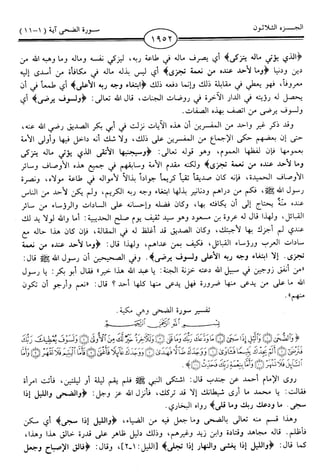 الجـزء الثلاثون
سـورة الضحى آية (١-١١)
١٩٥٢
﴿الذي يؤتي ماله يتزكى﴾ أي يصرف ماله في طاعة ربه، ليزكي نفسه وماله وما وهبه الله من
دين ودنيا ﴿وما لأحد عنده من نعمة تجزى﴾ أي ليس بذله ماله في مكافأة من أسدى إليه
معروفاً، فهو يعطي في مقابلة ذلك وإنما دفعه ذلك ﴿ابتغاء وجه ربه الأعلى﴾ أي طمعاً في أن
يحصل له رؤيته في الدار الآخرة في روضات الجنات، قال الله تعالى: ﴿ولسوف يرضى﴾ أي
ولسوف يرضى من اتصف بهذه الصفات.
وقد ذكر غير واحد من المفسرين أن هذه الآيات نزلت في أبي بكر الصديق رضي الله عنه،
حتى إن بعضهم حكى الإجماع من المفسرين على ذلك، ولا شك أنه داخل فيها وأولى الأمة
بعمومها فإن لفظها العموم، وهو قوله تعالى: ﴿وسيجنبها الأتقى الذي يؤتي ماله يتزكى
وما لأحد عنده من نعمة تجزى﴾ ولكنه مقدم الأمة وسابقهم في جميع هذه الأوصاف وسائر
الأوصاف الحميدة، فإنه كان صديقاً تقياً كريماً جواداً بذالاً لأمواله في طاعة مولاه، ونصرة
رسول الله ﷺ، فكم من دراهم ودنانير بذلها ابتغاء وجه ربه الكريم، ولم يكن لأحد من الناس
عنده منّة يحتاج إلى أن يكافئه بها، وكان فضله وإحسانه على السادات والرؤساء من سائر
القبائل، ولهذا قال له عروة بن مسعود وهو سيد ثقيف يوم صلح الحديبية: أما والله لولا يد لك
عندي لم أجزك بها لأجبتك، وكان الصديق قد أغلظ له في المقالة، فإن كان هذا حاله مع
سادات العرب ورؤساء القبائل، فكيف بمن عداهم، ولهذا قال: ﴿وما لأحد عنده من نعمة
تجزى. إلا ابتغاء وجه ربه الأعلى ولسوف يرضى﴾. وفي الصحيحين أن رسول الله ﷺ قال:
«من أنفق زوجين في سبيل الله دعته خزنة الجنة: يا عبد الله هذا خير» فقال أبو بكر: يا رسول
الله ما على من يدعى منها ضرورة فهل يدعى منها كلها أحد؟ قال: «نعم وأرجو أن تكون
منهم».
تفسير سورة الضحى وهي مكية.
روى الإمام أحمد عن جندب قال: اشتكى النبي ﷺ فلم يقم ليلة أو ليلتين، فأتت امرأة
فقالت: يا محمد ما أرى شيطانك إلا قد تركك، فأنزل الله عز وجل: ﴿والضحى والليل إذا
سجى. ما ودعك ربك وما قلى﴾ رواه البخاري.
وهذا قسم منه تعالى بالضحى وما جعل فيه من الضياء، ﴿والليل إذا سجى﴾ أي سكن
فأظلم. قاله مجاهد وقتادة وابن زيد وغيرهم، وذلك دليل ظاهر على قدرة خالق هذا وهذا،
كما قال: ﴿والليل إذا يغشى والنهار إذا تجلى﴾ [الليل: ١-٢]، وقال: ﴿فالق الإصباح وجعل